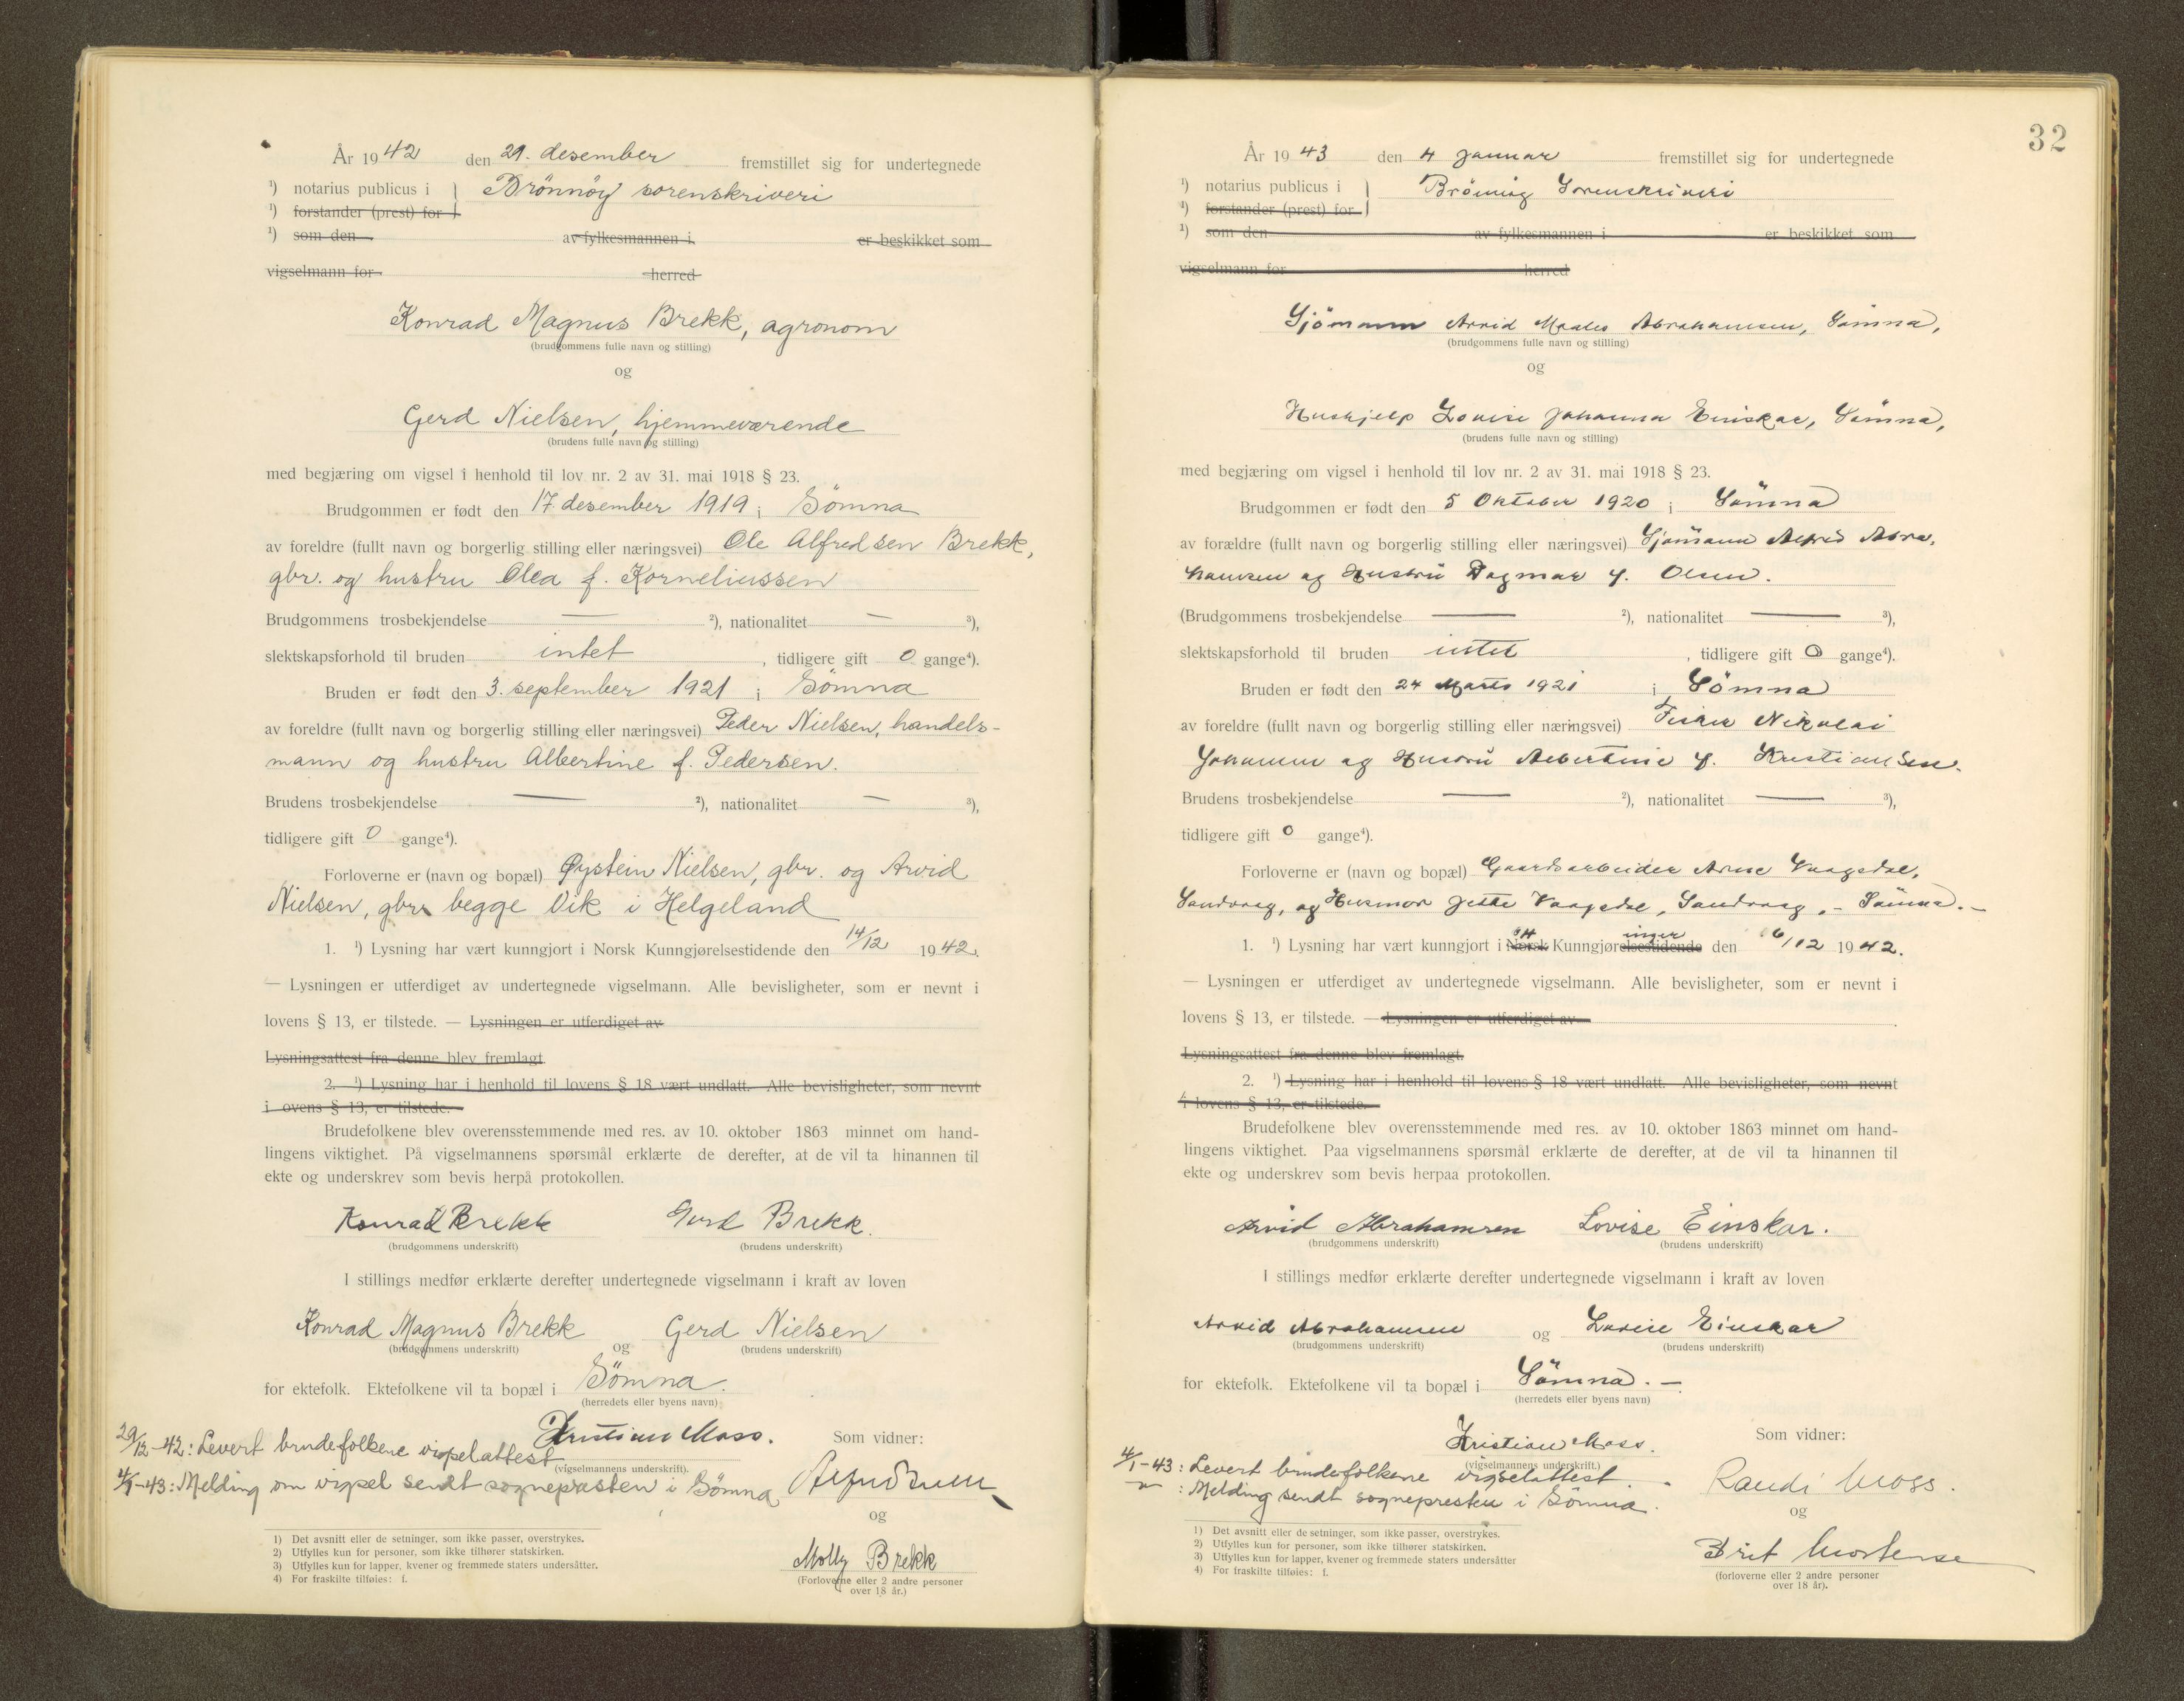 År 1942 den 29. desember fremstillet sig for undertegnede
¹) notarius publicus i } Brönnöy sorenskriveri
¹) forstander (prest) for
¹) som den av fylkesmannen i er beskikket som
vigselmann for herred
Konrad Magnus Brekk, agronom
(brudgommens fulle navn og stilling)
og
Gerd Nielsen, hjemmeværende
(brudens fulle navn og stilling)
med begjæring om vigsel i henhold til lov nr. 2 av 31. mai 1918 § 23.
Brudgommen er født den 17. desember 1919 i Sömna
av foreldre (fullt navn og borgerlig stilling eller næringsvei) Ole Alfredsen Brekk,
gbr. og hustru Olea f. Korneliussen
Brudgommens trosbekjendelse — ²), nationalitet — ³),
slektskapsforhold til bruden intet, tidligere gift 0 gange⁴).
Bruden er født den 3. september 1921 i Sömna
av foreldre (fullt navn og borgerlig stilling eller næringsvei) Peder Nielsen, handels-
mann og hustru Albertine f. Pedersen.
Brudens trosbekjendelse — ²), nationalitet — ³),
tidligere gift 0 gange⁴).
Forloverne er (navn og bopæl) Øystein Nielsen, gbr. og Arvid
Nielsen, gbr. begge Vik i Helgeland
1. ¹) Lysning har vært kunngjort i Norsk Kunngjørelsestidende den 14/12 1942.
— Lysningen er utferdiget av undertegnede vigselmann. Alle bevisligheter, som er nevnt i
lovens § 13, er tilstede. — Lysningen er utferdiget av
Lysningsattest fra denne blev fremlagt.
2. ¹) Lysning har i henhold til lovens § 18 vært undlatt. Alle bevisligheter, som nevnt
i ovens § 13, er tilstede.
Brudefolkene blev overensstemmende med res. av 10. oktober 1863 minnet om hand-
lingens viktighet. På vigselmannens spørsmål erklærte de derefter, at de vil ta hinannen til
ekte og underskrev som bevis herpå protokollen.
Konrad Brekk Gerd Brekk.
(brudgommens underskrift) (brudens underskrift)
I stillings medfør erklærte derefter undertegnede vigselmann i kraft av loven
Konrad Magnus Brekk og Gerd Nielsen
(brudgommens underskrift) (brudens underskrift)
for ektefolk. Ektefolkene vil ta bopæl i Sömna.
(herredets eller byens navn)
Kristian Moss. Som vidner:
29/12-42: Levert brudefolkene vigselattest
(vigselmannens underskrift).
4/1-43: Melding om vigsel sendt sognepresten i Sömna
og
Molly Brekk
(Forloverne eller 2 andre personer
over 18 år.)
1) Det avsnitt eller de setninger, som ikke passer, overstrykes.
2) Utfylles kun for personer, som ikke tilhører statskirken.
3) Utfylles kun for lapper, kvener og fremmede staters undersåtter.
4) For fraskilte tilføies: f.
32
År 1943 den 4 januar fremstillet sig for undertegnede
¹) notarius publicus i } Brönnöy Sorenskriveri
¹) forstander (prest) for
¹) som den av fylkesmannen i er beskikket som
vigselmann for herred
Sjömann Arvid Abrahamsen, Sömna,
(brudgommens fulle navn og stilling)
og
Hushjelp Lovise Johanna Einskar, Sömna,
(brudens fulle navn og stilling)
med begjæring om vigsel i henhold til lov nr. 2 av 31. mai 1918 § 23.
Brudgommen er født den 5 Oktober 1920 i Sömna
av forældre (fullt navn og borgerlig stilling eller næringsvei) Sjömann Alfred Abra-
hamsen og Hustru Dagmar f. Olsen.
(Brudgommens trosbekjendelse — ²), nationalitet — ³),
slektskapsforhold til bruden intet, tidligere gift 0 gange⁴).
Bruden er født den 24 Marts 1921 i Sömna
av foreldre (fullt navn og borgerlig stilling eller næringsvei) Fisker Nikolai
Johansen og Hustru Albertine f. Kristiansen.
Brudens trosbekjendelse — ²), nationalitet — ³),
tidligere gift 0 gange⁴).
Forloverne er (navn og bopæl) Gaardsarbeider Arne Vaagedal,
Sandvaag, og Husmor Jette Vaagedal, Sandvaag, - Sömna.-
1. ¹) Lysning har vært kunngjort i Norsk Kunngjørelsestidende inger den 6/12 1942.
— Lysningen er utferdiget av undertegnede vigselmann. Alle bevisligheter, som er nevnt i
lovens § 13, er tilstede. — Lysningen er utferdiget av
Lysningsattest fra denne blev fremlagt.
2. ¹) Lysning har i henhold til lovens § 18 vært undlatt. Alle bevisligheter, som nevnt
i lovens § 13, er tilstede.
Brudefolkene blev overensstemmende med res. av 10. oktober 1863 minnet om hand-
lingens viktighet. Paa vigselmannens spørsmål erklærte de derefter, at de vil ta hinannen til
ekte og underskrev som bevis herpaa protokollen.
Arvid Abrahamsen Lovise Einskar.
(brudgommens underskrift) (brudens underskrift)
I stillings medfør erklærte derefter undertegnede vigselmann i kraft av loven
Arvid Abrahamsen og Lovise Einskar
(brudgommens underskrift) (brudens underskrift)
for ektefolk. Ektefolkene vil ta bopæl i Sömna. -
(herredets eller byens navn)
Kristian Moss. Som vidner:
(vigselmannens underskrift.)
4/1-43: Levert brudefolkene vigselattest.
" : Melding sendt sognepresten i Sömna.
Randi Moss.
og
Brit Mortense
(forloverne eller 2 andre personer
over 18 år).
1) Det avsnitt eller de setninger, som ikke passer, overstrykes.
2) Utfylles kun for personer, som ikke tilhører statskirken.
3) Utfylles kun for lapper, kvener og fremmede staters undersåtter
4) For fraskilte tilføies: f.